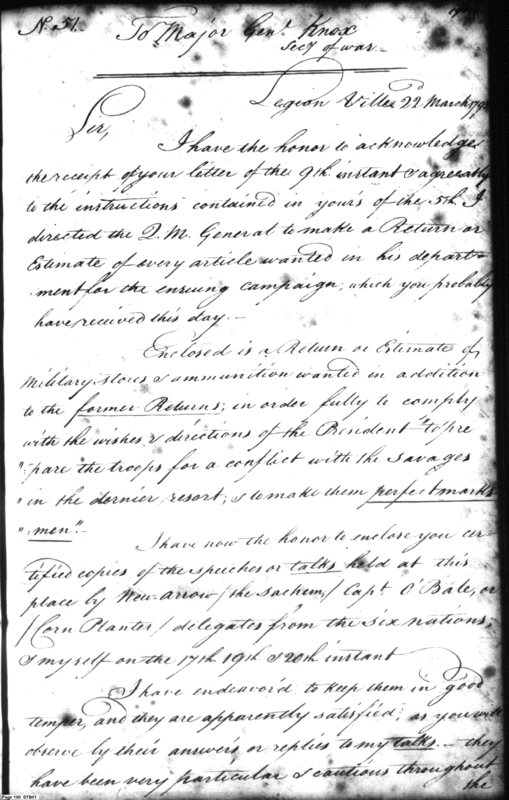 No. 51.
To Major Genl. Knox
Secy of war
Legion Ville 22d March 1793
Sir,
I have the honor to acknowledge
the receipt of your letter of the 9th instant & agreeably
to the instructions contained in yours of the 5th I
directed the Q. M. General to make a Return or
Estimate of every article wanted in his depart-
-ment for the ensuing campaign, which you probably
have received this day.—
Enclosed is a Return or Estimate of
Military stores & ammunition wanted in addition
to the former Returns; in order fully to comply
with the wishes & directions of the President "to pre
": pare the troops for a conflict with the savages
" in the dernier resort, & to make them perfect marks
": men".—
I have now the honor to enclose you cer
tified copies of the speeches or talks held at this
place by New-arrow / the sachem, / Capt. O'Bale, or
/ Corn Planter / delegates from the six nations,
& myself on the 17th 19th & 20th instant
I have endeavor'd to keep them in good
temper, and they are apparently satisfied; as you will
observe by their answers or replies to my talks — they
have been very particular & cautious throughout
the
Page 190 DTB01